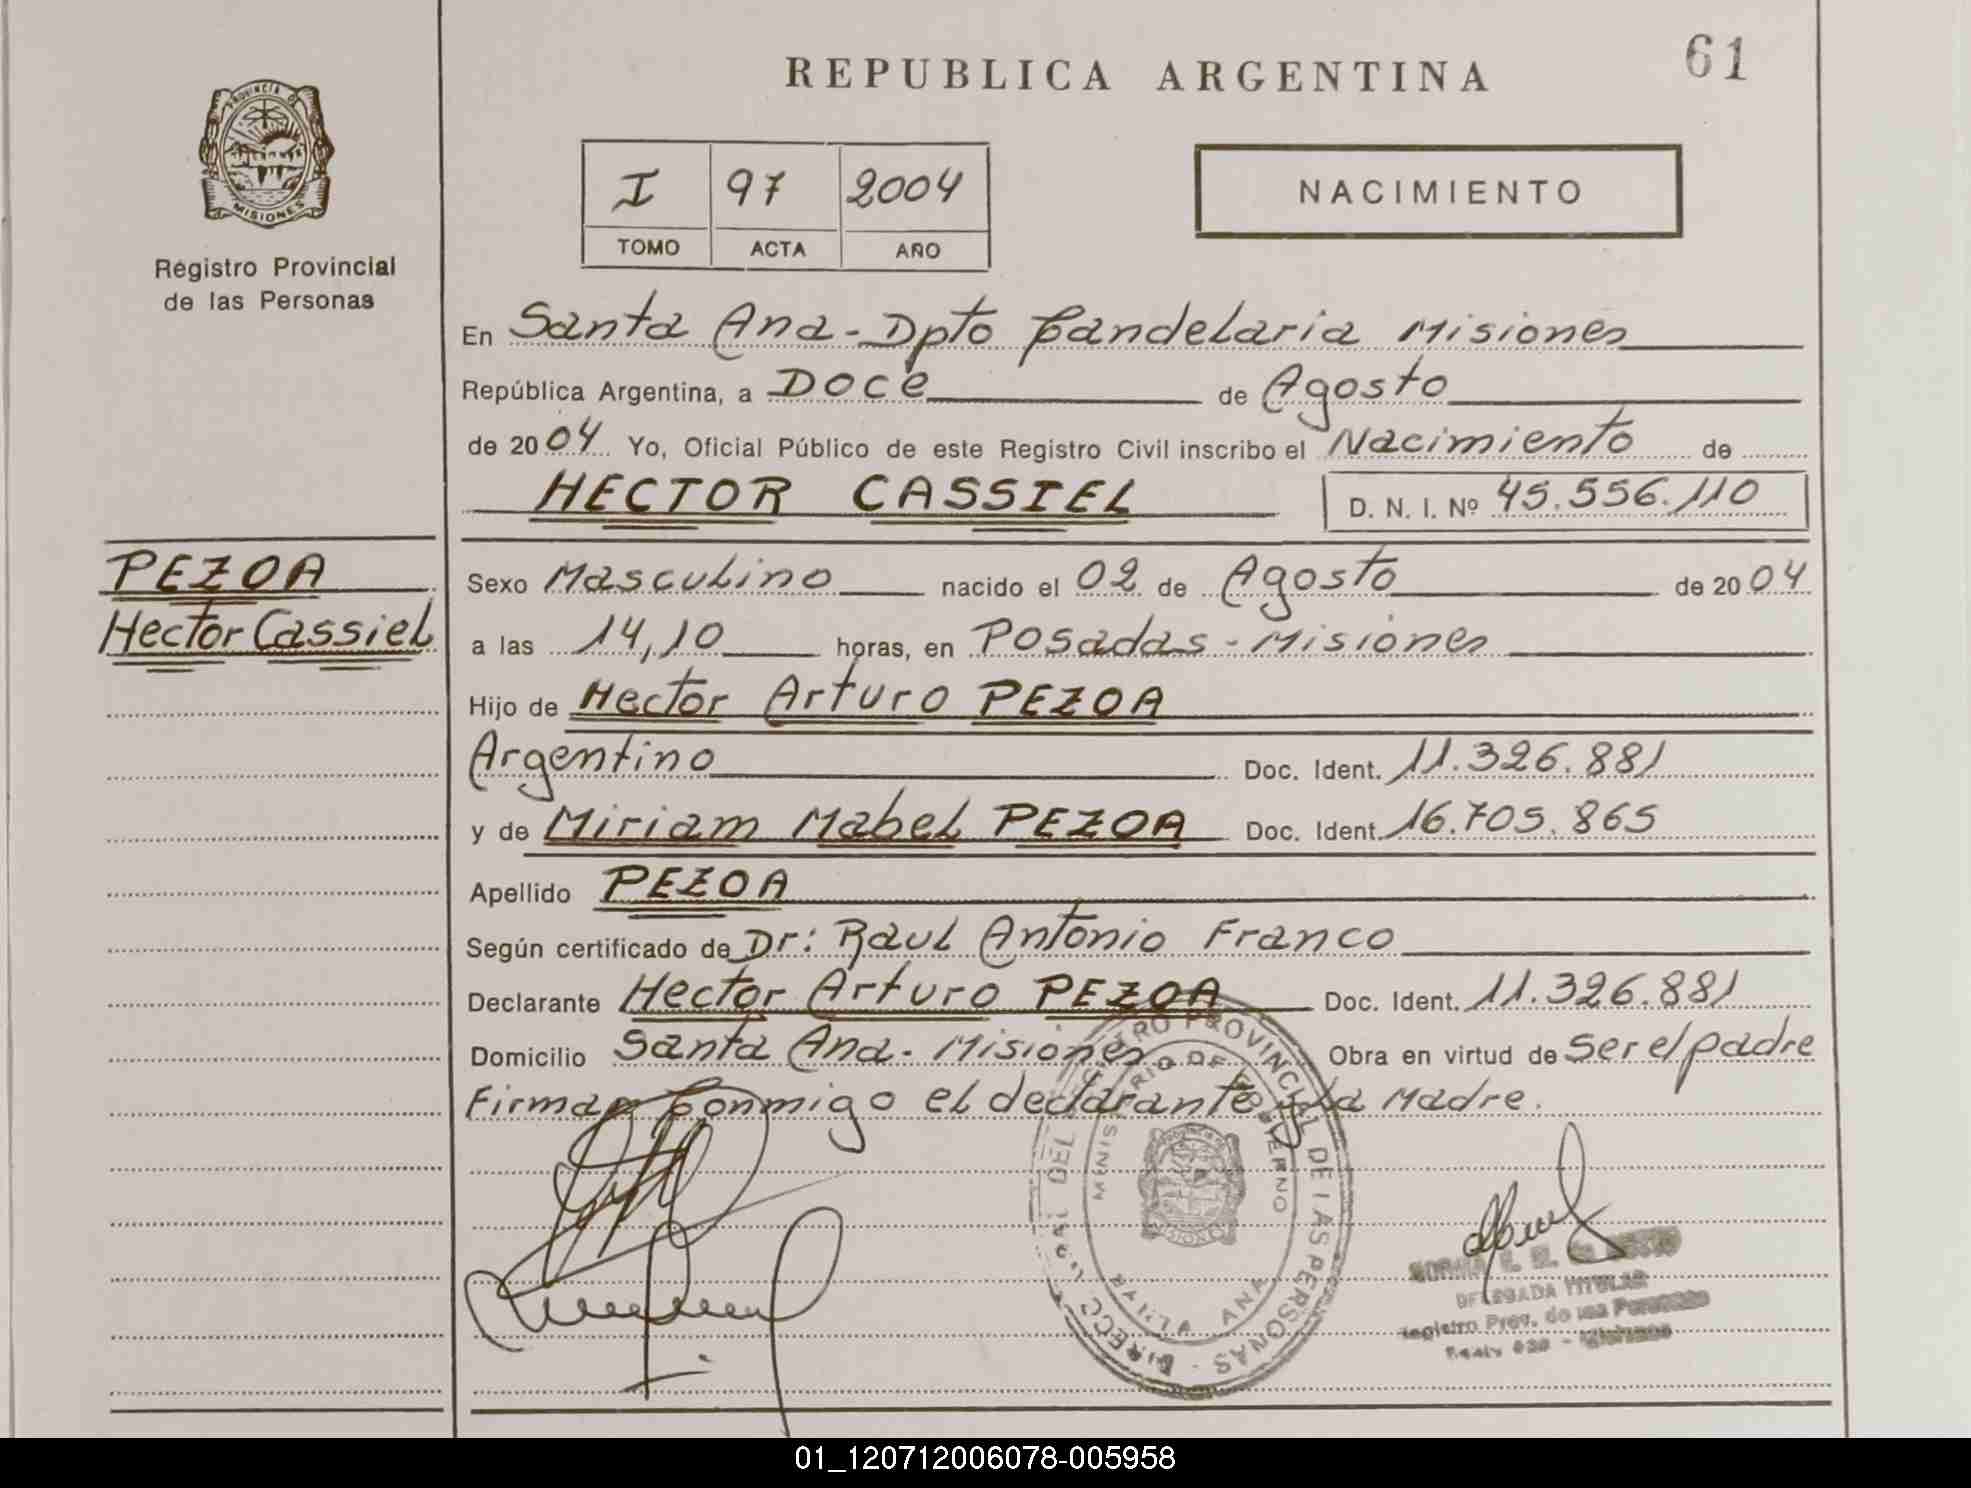 61
REPUBLICA ARGENTINA
PROVINCIA DE
MISIONES
Registro Provincial
de las Personas
I 97 2004
TOMO ACTA AÑO
NACIMIENTO
En Santa Ana - Dpto Candelaria Misiones
República Argentina, a Doce de Agosto
de 2004 Yo, Oficial Público de este Registro Civil inscribo el Nacimiento de
HECTOR CASSIEL D. N. I. Nº 45.556.110
PEZOA
Hector Cassiel
Sexo Masculino nacido el 02 de Agosto de 2004
a las 14,10 horas, en Posadas - Misiones
Hijo de Hector Arturo PEZOA
Argentino Doc. Ident. 11.326.881
y de Miriam Mabel PEZOA Doc. Ident. 16.705.865
Apellido PEZOA
Según certificado de Dr: Raul Antonio Franco
Declarante Hector Arturo PEZOA Doc. Ident. 11.326.881
Domicilio Santa Ana - Misiones Obra en virtud de Ser el padre
Firman Conmigo el declarante y La Madre.
PROVINCIAL DE LAS PERSONAS
MINISTERIO DE GOBIERNO
ANA
DELEGADA TITULAR
Registro Prov. de las Personas
Misiones
01_120712006078-005958